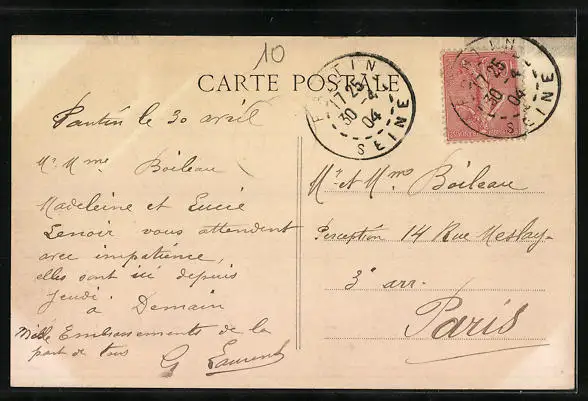 10
CARTE POSTALE
PANTIN
17 25
30 -4
04
SEINE
PANTIN
17 25
30 -4
04
SEINE
Pantin le 30 avril
Mr Mme Boileau
Madeleine et Lucie
Lenoir vous attendent
avec impatience,
elles sont ici depuis
Jeudi.
a Demain
Mille Embrassements de la
part de tous
G Laurent
Mr et Mme Boileau
Perception 14 Rue Meslay
3e arr.
Paris